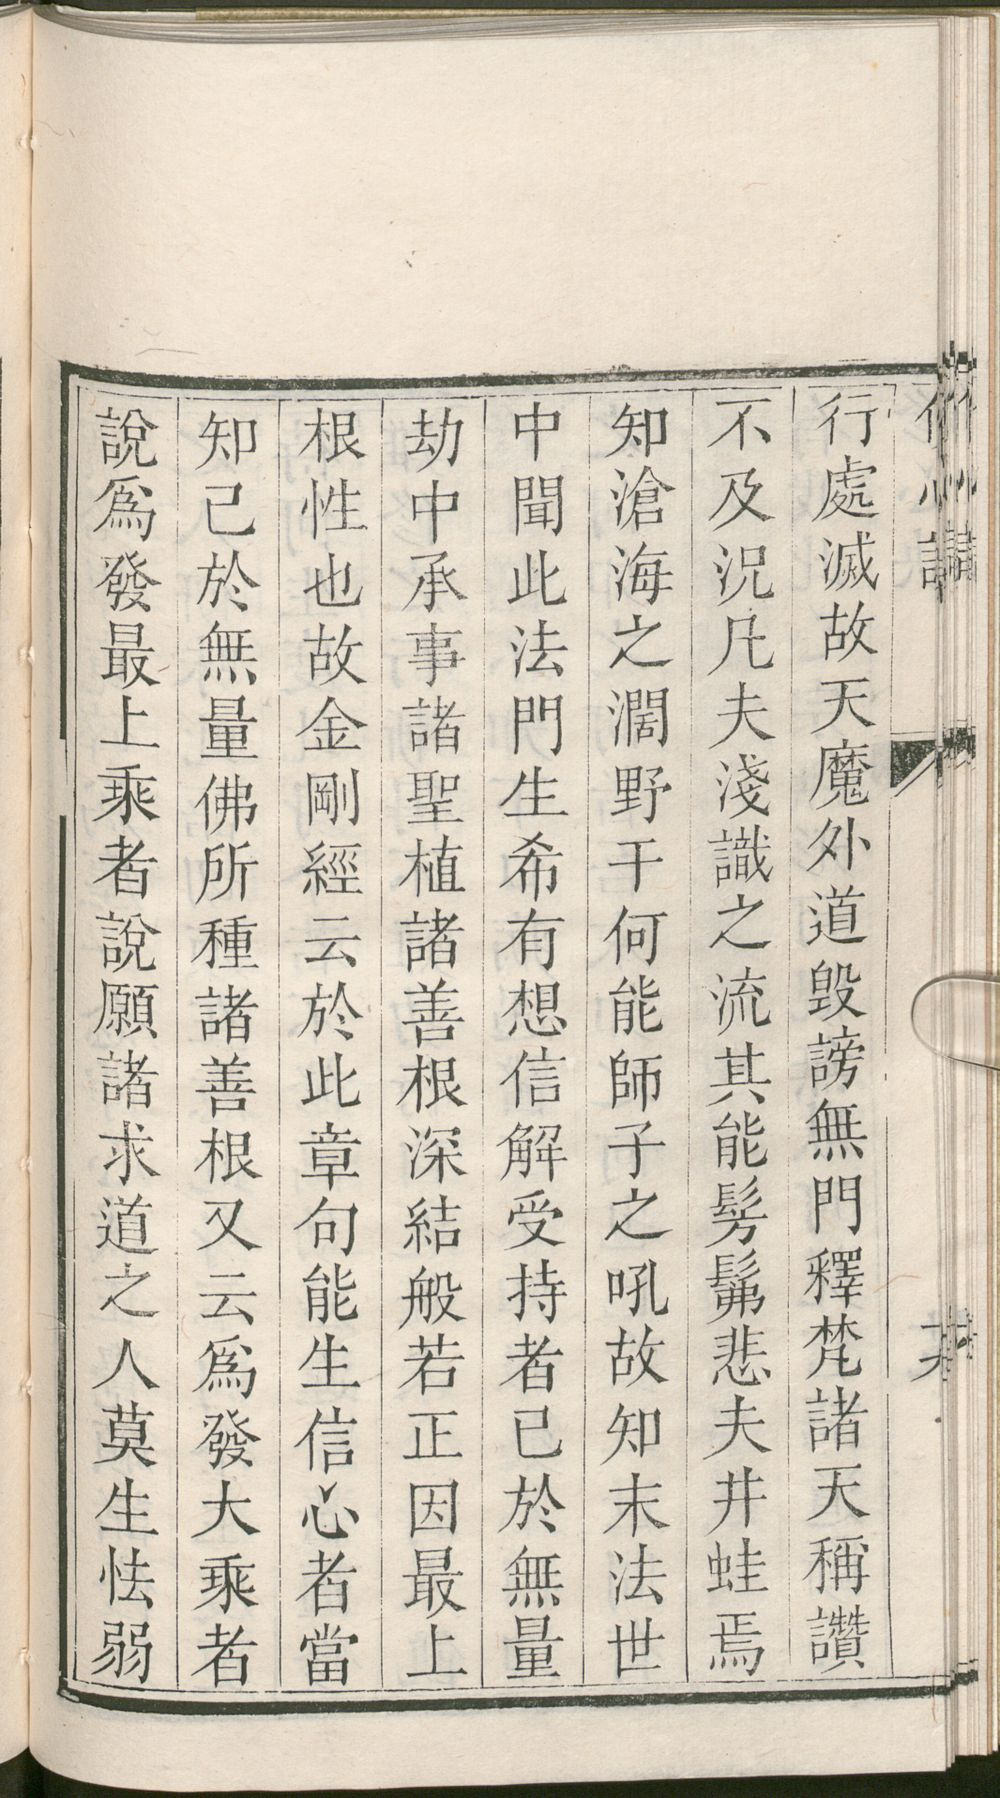 行處滅故天魔外道毀謗無門釋梵諸天稱讚
不及況凡夫淺識之流其能髣髴悲夫井蛙焉
知滄海之濶野干何能師子之吼故知末法世
中聞此法門生希有想信解受持者已於無量
劫中承事諸聖植諸善根深結般若正因最上
根性也故金剛經云於此章句能生信心者當
知已於無量佛所種諸善根又云爲發大乘者
說爲發最上乘者說願諸求道之人莫生怯弱